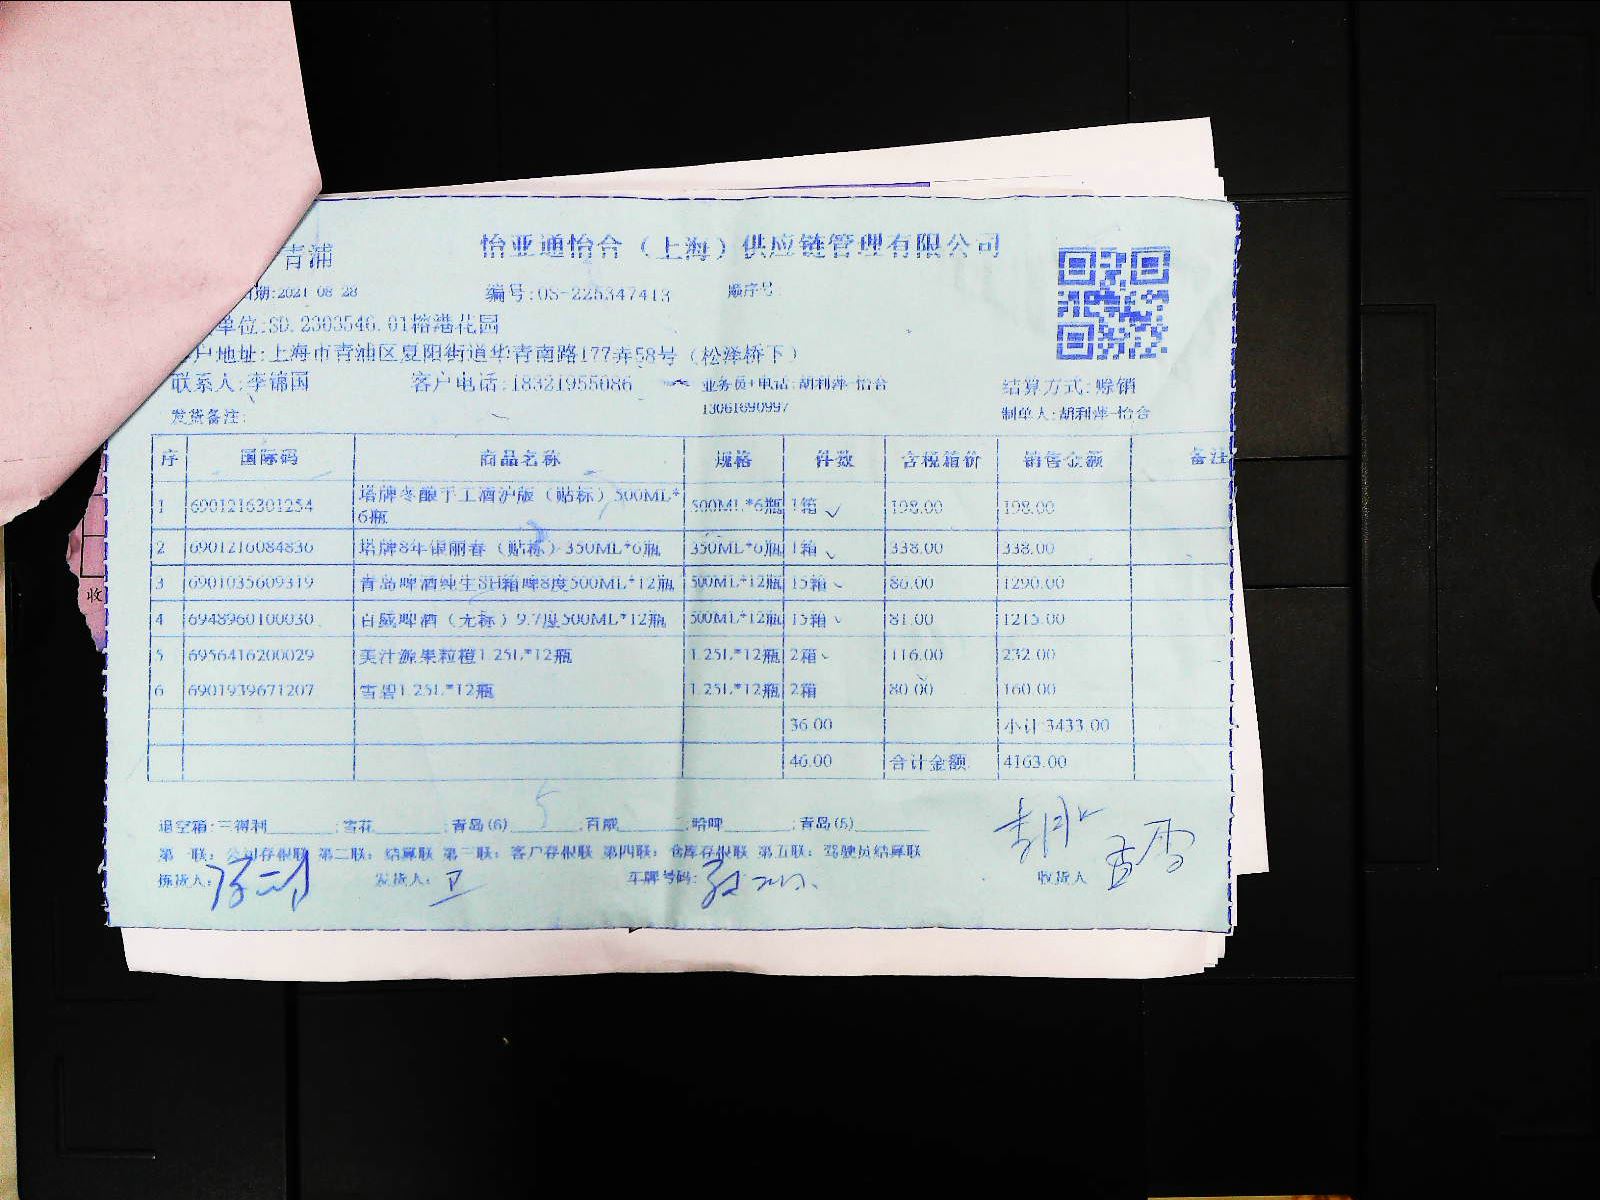 青浦
怡亚通怡合（上海）供应链管理有限公司
日期:2021-08-28 编号:OS-225347413 顺序号:
单位:SD.2303546.01榕港花园
户地址:上海市青浦区夏阳街道华青南路177弄58号（松泽桥下）
联系人:李锦国 客户电话:18321955086 业务员+电话:胡利萍-怡合 结算方式:赊销
13061690997 制单人:胡利萍-怡合
发货备注:
序 国际码 商品名称 规格 件数 含税箱价 销售金额 备注
1 6901216301254 塔牌冬酿手工酒沪版（贴标）500ML*6瓶 500ML*6瓶 1箱 198.00 198.00
2 6901216084836 塔牌8年银丽春（贴标）350ML*6瓶 350ML*6瓶 1箱 338.00 338.00
3 6901035609319 青岛啤酒纯生SH箱啤8度500ML*12瓶 500ML*12瓶 15箱 86.00 1290.00
4 6948960100030 百威啤酒（无标）9.7度500ML*12瓶 500ML*12瓶 15箱 81.00 1215.00
5 6956416200029 美汁源果粒橙1.25L*12瓶 1.25L*12瓶 2箱 116.00 232.00
6 6901939671207 雪碧1.25L*12瓶 1.25L*12瓶 2箱 80.00 160.00
36.00 小计:3433.00
46.00 合计金额 4163.00
5
退空箱:三得利 ;雪花 ;青岛(6) ;百威 ;哈啤 ;青岛(5)
第一联：公司存根联 第二联：结算联 第三联：客户存根联 第四联：仓库存根联 第五联：驾驶员结算联
拣货人: 发货人: 卫 车牌号码: 收货人
收